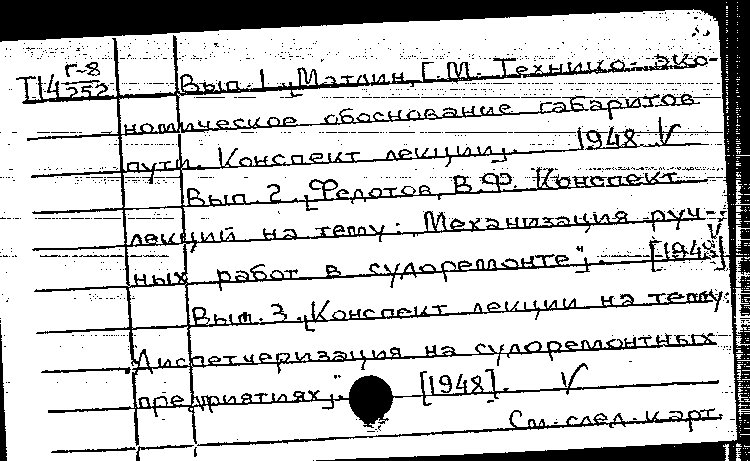 Г-8
Т14 252
Вып. 1. [Матлин, Г.М. Технико-эко-
номическое обоснование габаритов
пути. Конспект лекции]. 1948 V
Вып. 2. [Федотов, В.Ф. Конспект
лекций на тему: "Механизация руч-
ных работ в судоремонте"]. [1948] V
Вып. 3. [Конспект лекции на тему:
"Диспетчеризация на судоремонтных
предприятиях"]. [1948]. V
См. след. карт.